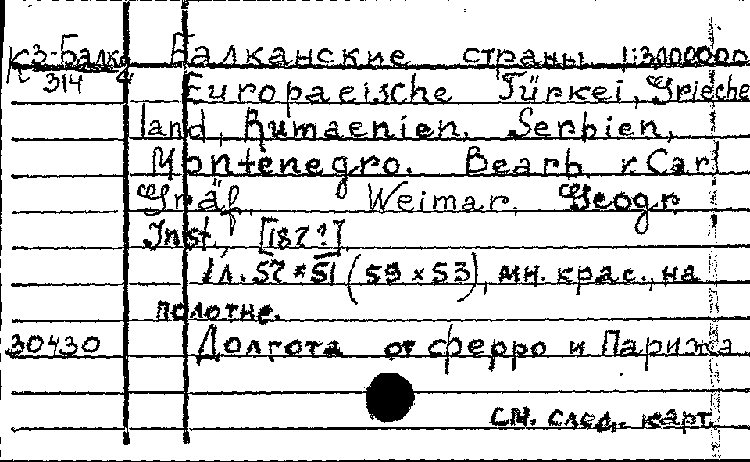 К3-Балк Балканские страны 1:3000000
314 Europaeische Türkei, Grieche
land, Rumaenien. Serbien,
Montenegro. Bearb. v. Carl
Gräf. Weimar. Geogr.
Inst., [187?].
1 л. 57*51 (59×53), мн. крас., на
полотне.
30430 Долгота от Ферро и Парижа
См. след. карт.